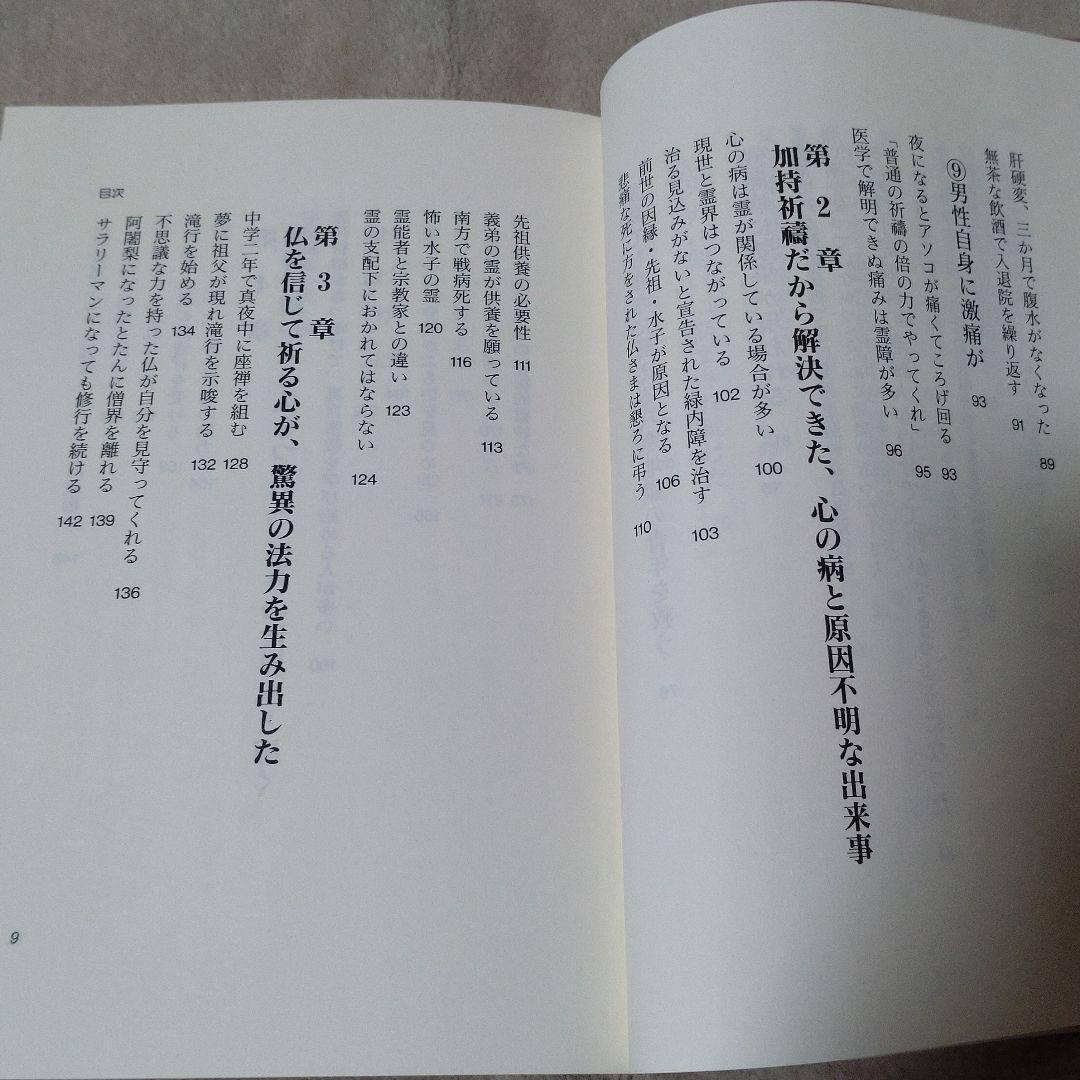 肝硬変、三か月で腹水がなくなった 89
無茶な飲酒で入退院を繰り返す 91
⑨男性自身に激痛が 93
夜になるとアソコが痛くてころげ回る 93
「普通の祈禱の倍の力でやってくれ」 95
医学で解明できぬ痛みは霊障が多い 96
第2章
加持祈禱だから解決できた、心の病と原因不明な出来事
心の病は霊が関係している場合が多い 100
現世と霊界はつながっている 102
治る見込みがないと宣告された緑内障を治す 103
前世の因縁・先祖・水子が原因となる 106
悲痛な死に方をされた仏さまは懇ろに弔う 110
先祖供養の必要性 111
義弟の霊が供養を願っている 113
南方で戦病死する 116
怖い水子の霊 120
霊能者と宗教家との違い 123
霊の支配下におかれてはならない 124
第3章
仏を信じて祈る心が、驚異の法力を生み出した
中学二年で真夜中に座禅を組む 128
夢に祖父が現れ滝行を示唆する 132
滝行を始める 134
不思議な力を持った仏が自分を見守ってくれる 136
阿闍梨になったとたんに僧界を離れる 139
サラリーマンになっても修行を続ける 142
目次
9